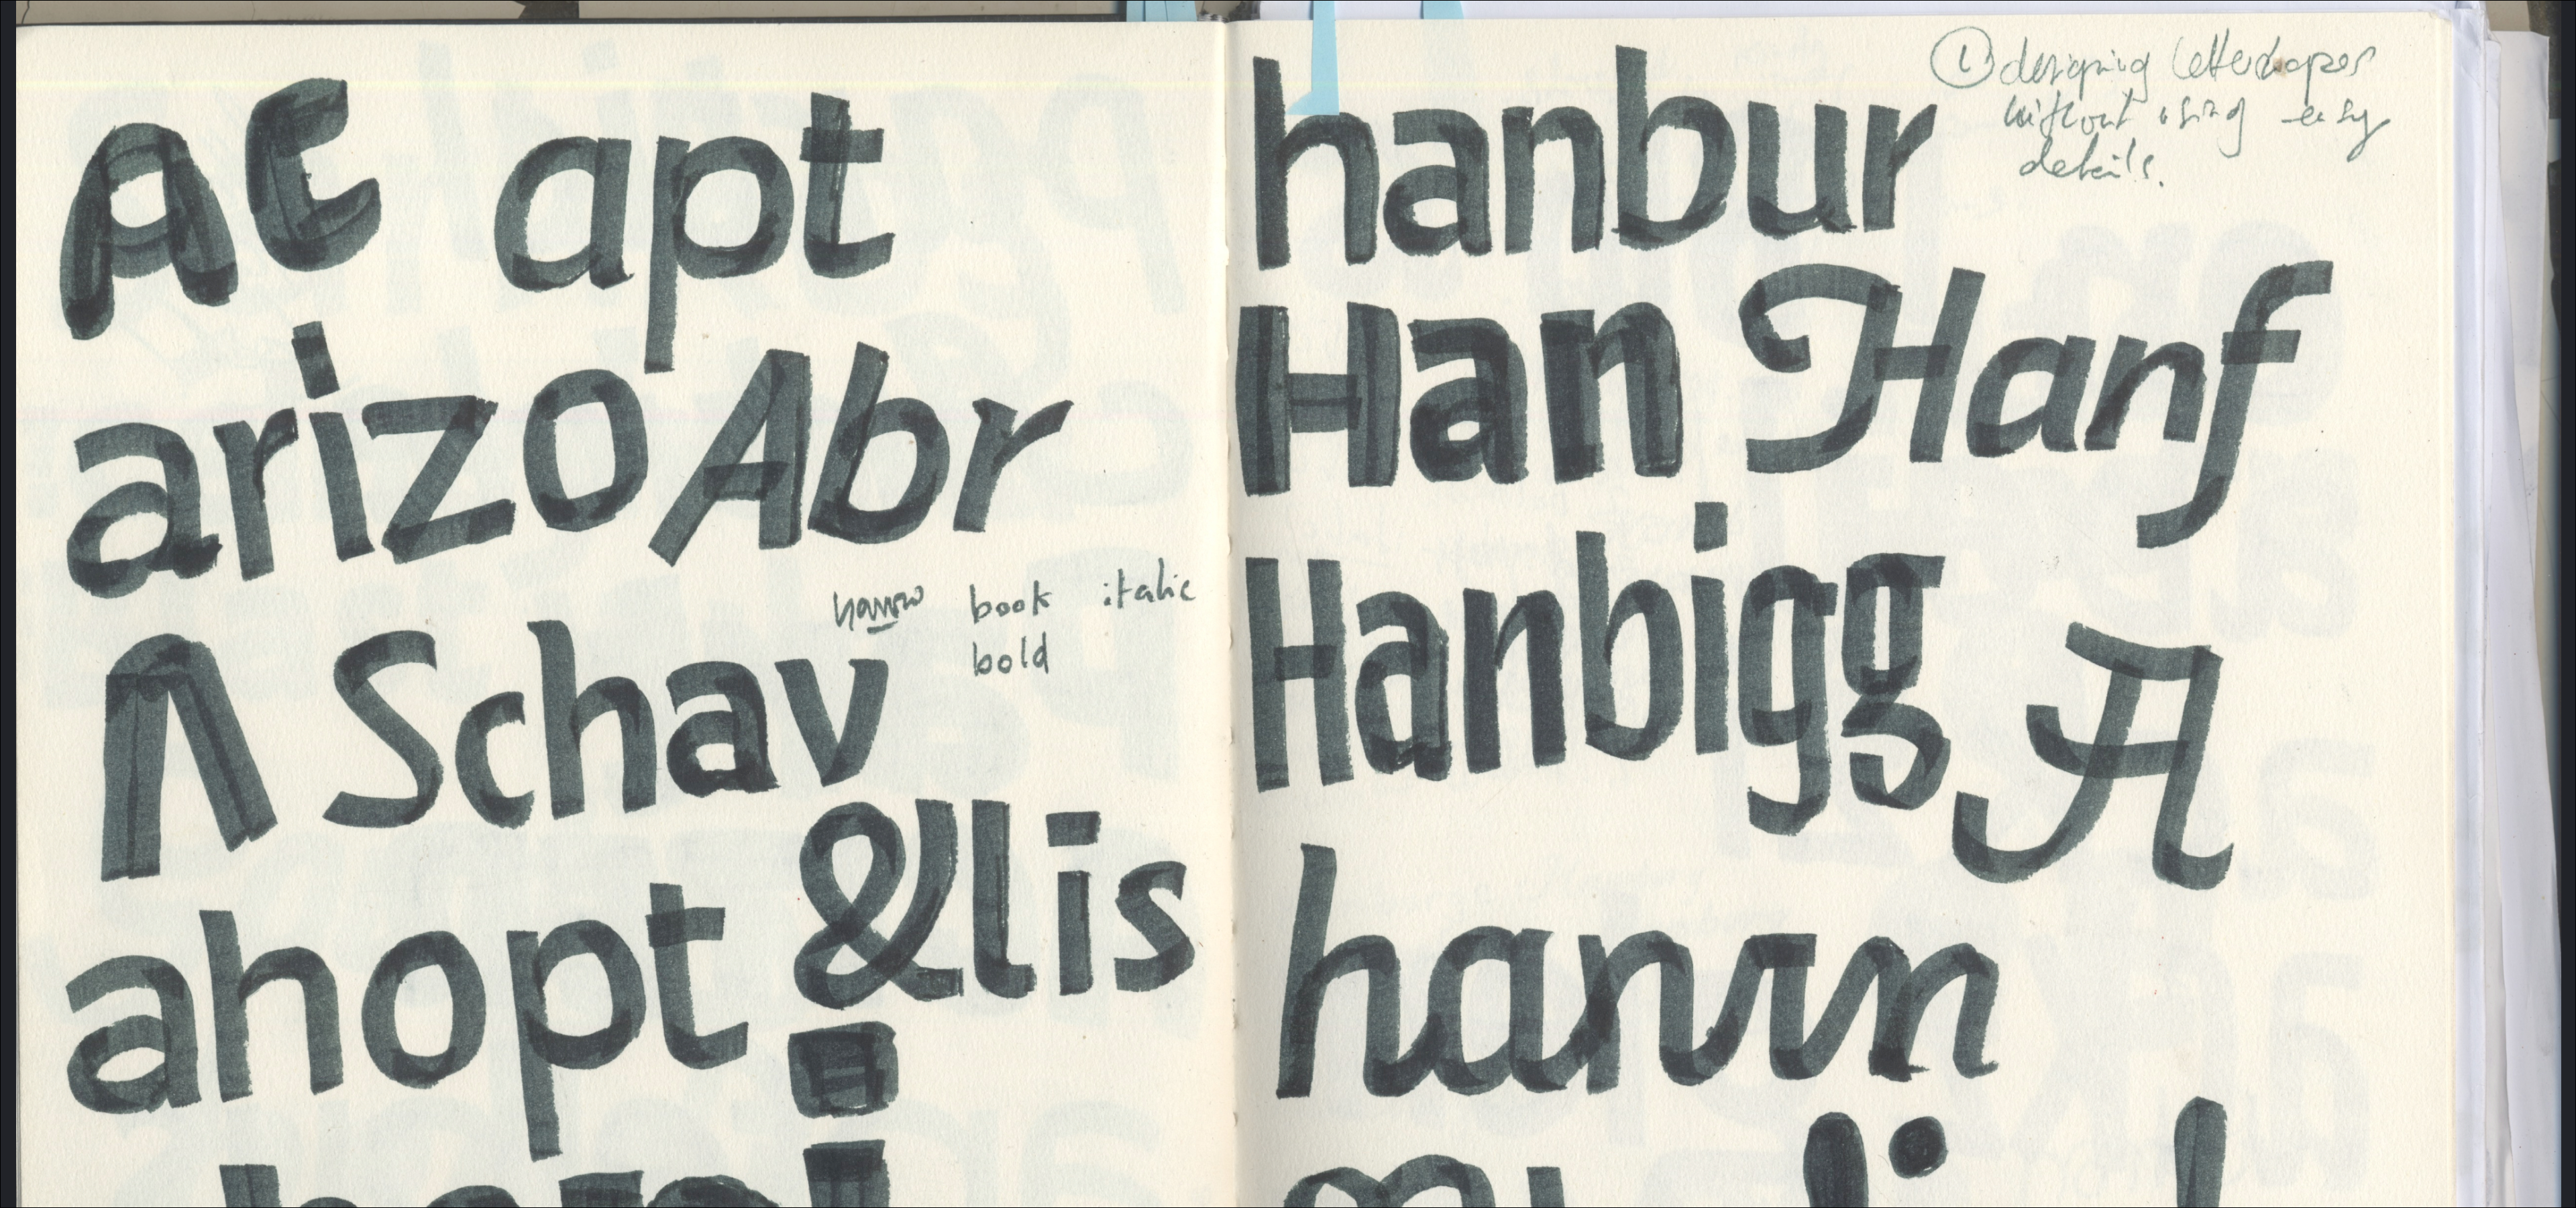 AC apt
arizo Abr
narrow book italic
bold
Λ Schav
&lis
ahopt
hanbur
① designing lettershapes
without using easy
details.
Han Hanf
Hanbigg A
hanrn